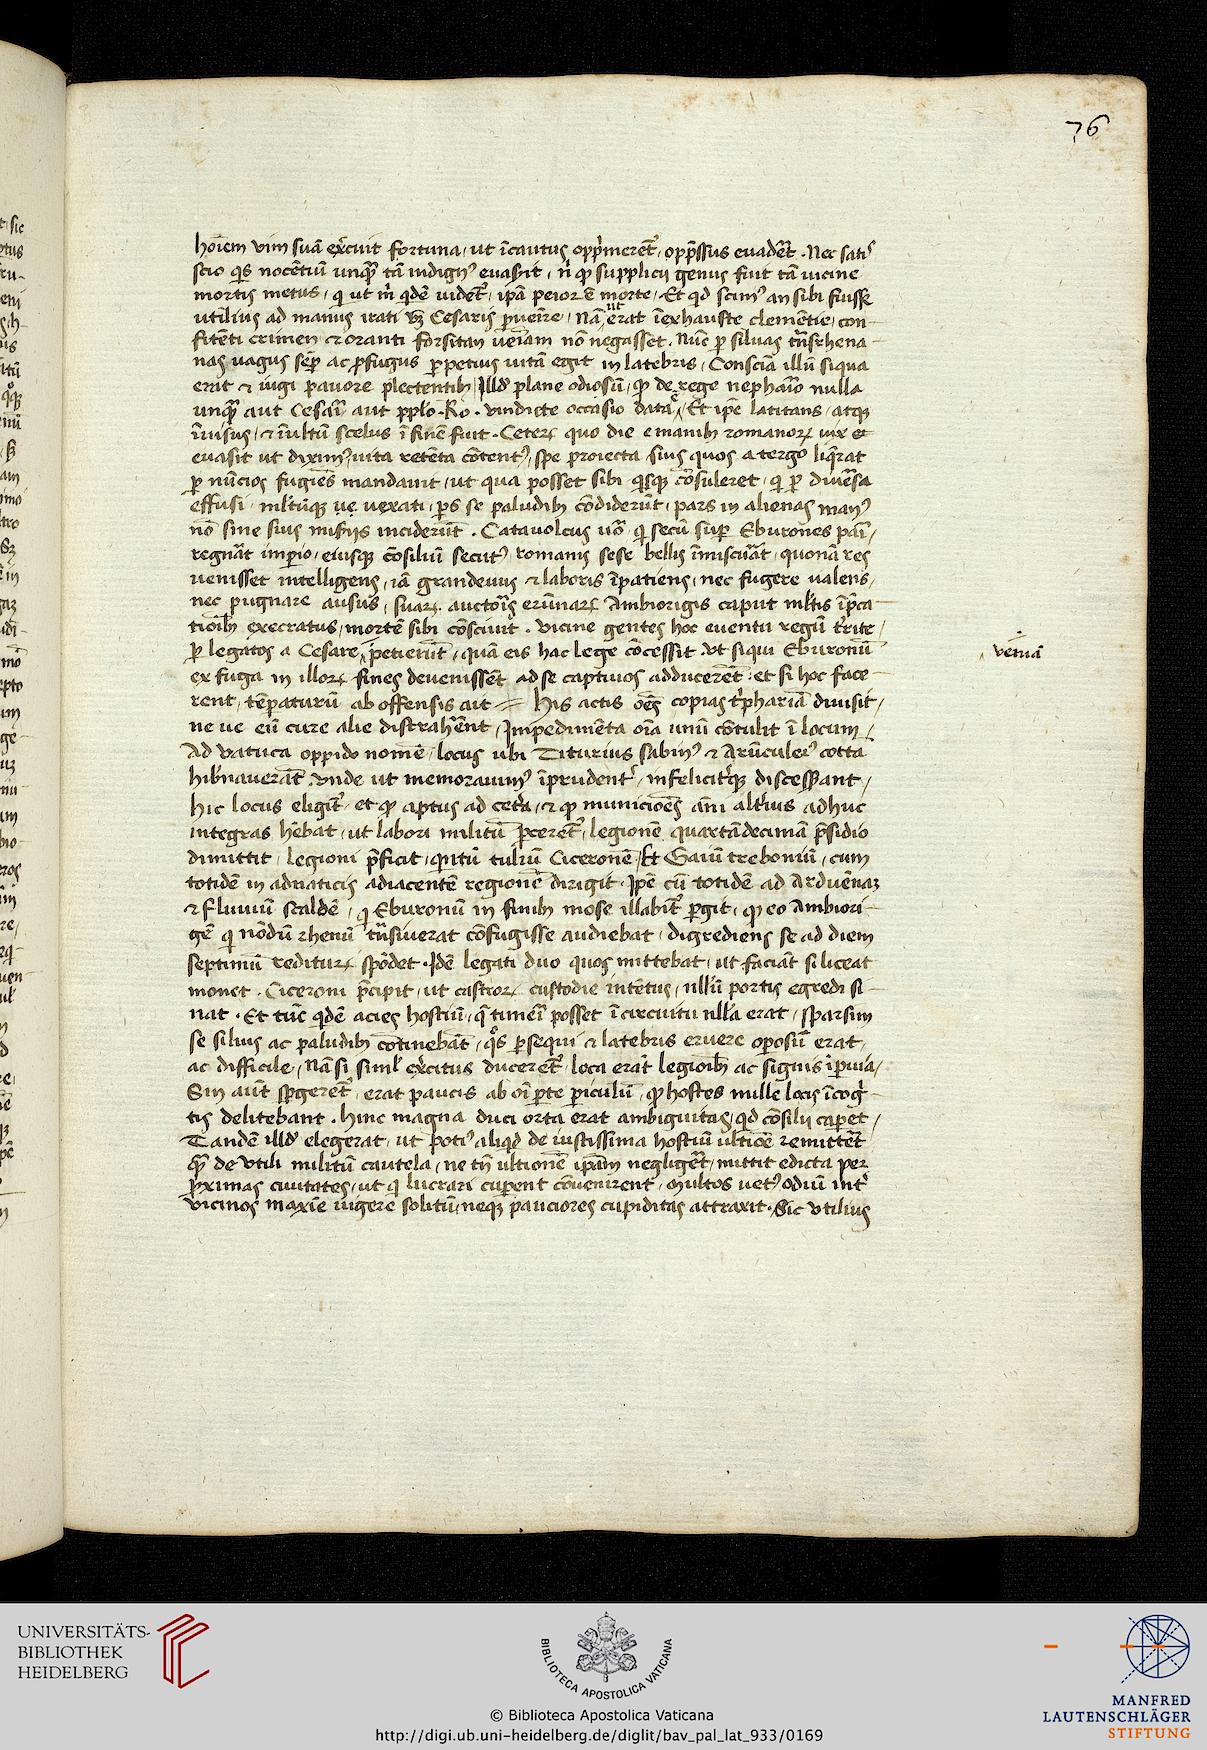 76
hoīem vim suā ex̄cuit fortuna, ut īcautus opp̄meret᷑, opp̄ssus euad̄et. Nec satis
scio q̄s nocētiū unq̄ tā indign᷒ euas̄it, n̄ qp̄ supplicii genus fuit tā uicine
mortis metus, q ut m̄ qdē uidet᷑, ip̄ā peior ē morte. Et qd scim᷒ an sibi fuisse
utilius ad manus irati Cesaris p̱uenire, Nā erat īexhauste clemētie, con-
fitēti crimen et oranti forsitan ueniam nō negasset. Nūc p̱ siluas trāsrhena-
nas uagus sēp ac p̱fugus p̱petuus uitā egit in latebris, Consciā illū siqua
erat et iugi pauore plectentib᷒, illd plane odiosū, qp̄ de rege nephario nulla
unq̄ aut Cesari aut pplo Ro. vindicte occasio data. Et ip̄e latitans, atq
īuisus, et īultū scelus ī finē fuit. Ceter quo die e manib᷒ romanor vix et
euasit ut dixim᷒, uita retēta cōtent᷒, spe proiecta suis quos a tergo liq̄rat
p̱ nūcios fugiēs mandauit, ut qua posset sibi qsq cōsuleret, qi p̱ diūsa
effusi, mltūq ue uexati, p̱s se paludib᷒ cōdiderūt, pars in alienas man᷒
nō sine suis mis̄iis inciderūt. Catauolcus uō, qi secū sup̱ Eburones pari,
regnāt imp̱io, eiusq cōsiliū secut᷒ romanis sese bellis īmiscūat, quonā res
uenisset intelligens, iā grandeuus et laboris īpatiens, nec fugere ualens,
nec pugnare ausus, suar auctoris erūnar Ambiorigis caput mltis īp̄ca
tionib᷒ execratus, mortē sibi cōsciuit. vicine gentes hoc euentu regū trite,
p̱ legatos a Cesare petierūt, quā eis hac lege cōcessit ut siqui Eburonū
ueniā
ex fuga in illor fines deuenissēt ad se captiuos adducerēt, et si hoc face-
rent, tēpaturū ab offensis ait = his actis oēs copias tiphariā diuisit,
ne ue eū cure alie distrahēnt, Impedimēta oīa unū cōtulit ī locum,
Ad vatuca oppido nomē, locus ubi Titurius sabin᷒ et Arūculei᷒ cotta
hibnauerāt. Vnde ut memorauim᷒ īprudent᷑, infelicit᷑q discesserant,
hic locus eligit᷑, et qp̄ aptus ad cetā, et qp̄ municiōes āni altius adhuc
integras hēbat, ut labori militū p̄ceret᷑, legionē quartādecimā p̄sidio
dimittit, legioni p̄ficit, q̄itū tuliū Ciceronē, Et Gaiū treboniū, cum
totidē in aduaticis adiacentē regionē dirigit. Ip̄e cū totidē ad Arduēnaz
et fluuiū scaldē, qi Eburonū in finib᷒ mose illabit᷑ p̱git, qp̄ eo Ambiori-
gē qi nōdū rhenū trāsiuerat cōfugisse audiebat, digrediens se ad diem
septimū reditur spōdet. Idē legati duo quos mittebat, ut faciāt si liceat
monet. Ciceroni p̄cipit, ut castror custodie intētus, nllū portis egredi si-
nat. Et tūc qdē acies hostiū, q̄ timeri posset ī circuitu nlla erat, sparsim
se siluis ac paludib᷒ cōtinebāt, q̄s p̱sequi et latebris eruere op̱osū erat,
ac difficile, Nā si siml ex̄citus duceret᷑, loca erāt legionib᷒ ac signis īp̱uia,
Sin aūt sp̱geret᷑, erat paucis ab oī p̱te p̱iculū, qp̄ hostes mille locis īcoḡi-
tis delitebant. hinc magna duci orta erat ambiguitas, qd cōsilii cap̱et,
Tandē illd elegerat, ut poti᷒ aliqd de iustissima hostiū ultiōe remittēt
q̄ de vtili militū cautela, ne tn̄ ultionē ip̄am negliget, mittit edicta per
p̱ximas ciuitates, ut qi lucrari cup̱ent cōuenirent, Multos uet᷒ odiū int᷑
vicinos maxīe uigere solitū, neq pauciores cupiditas attraxit. Sic vtilius
UNIVERSITÄTS-
BIBLIOTHEK
HEIDELBERG
BIBLIOTECA APOSTOLICA VATICANA
© Biblioteca Apostolica Vaticana
http://digi.ub.uni-heidelberg.de/diglit/bav_pal_lat_933/0169
MANFRED
LAUTENSCHLÄGER
STIFTUNG